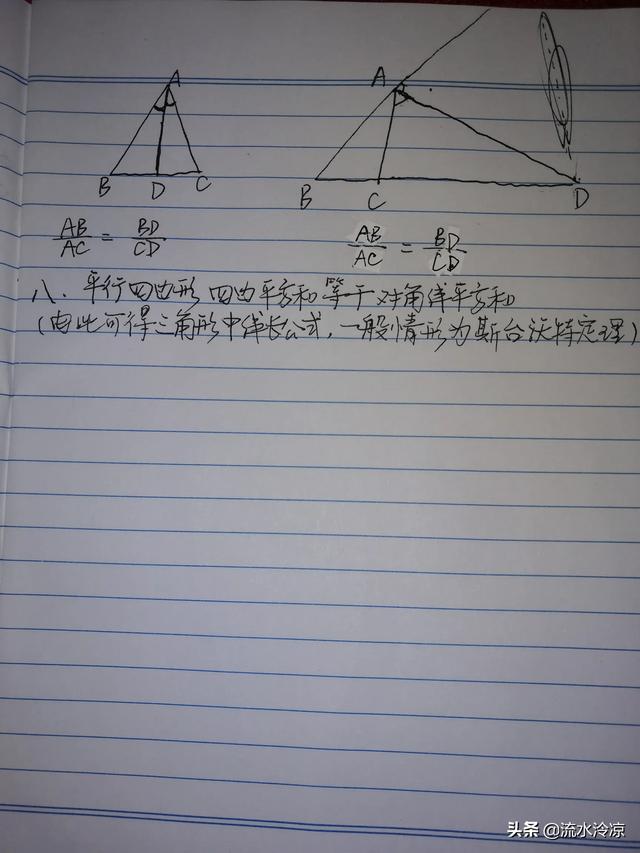 A
B D C
A
B C D
AB/AC = BD/CD
AB/AC = BD/CD
八. 平行四边形 四边平方和等于对角线平方和
(由此可得三角形中线长公式, 一般情形为斯台沃特定理)
头条 @流水冷凉